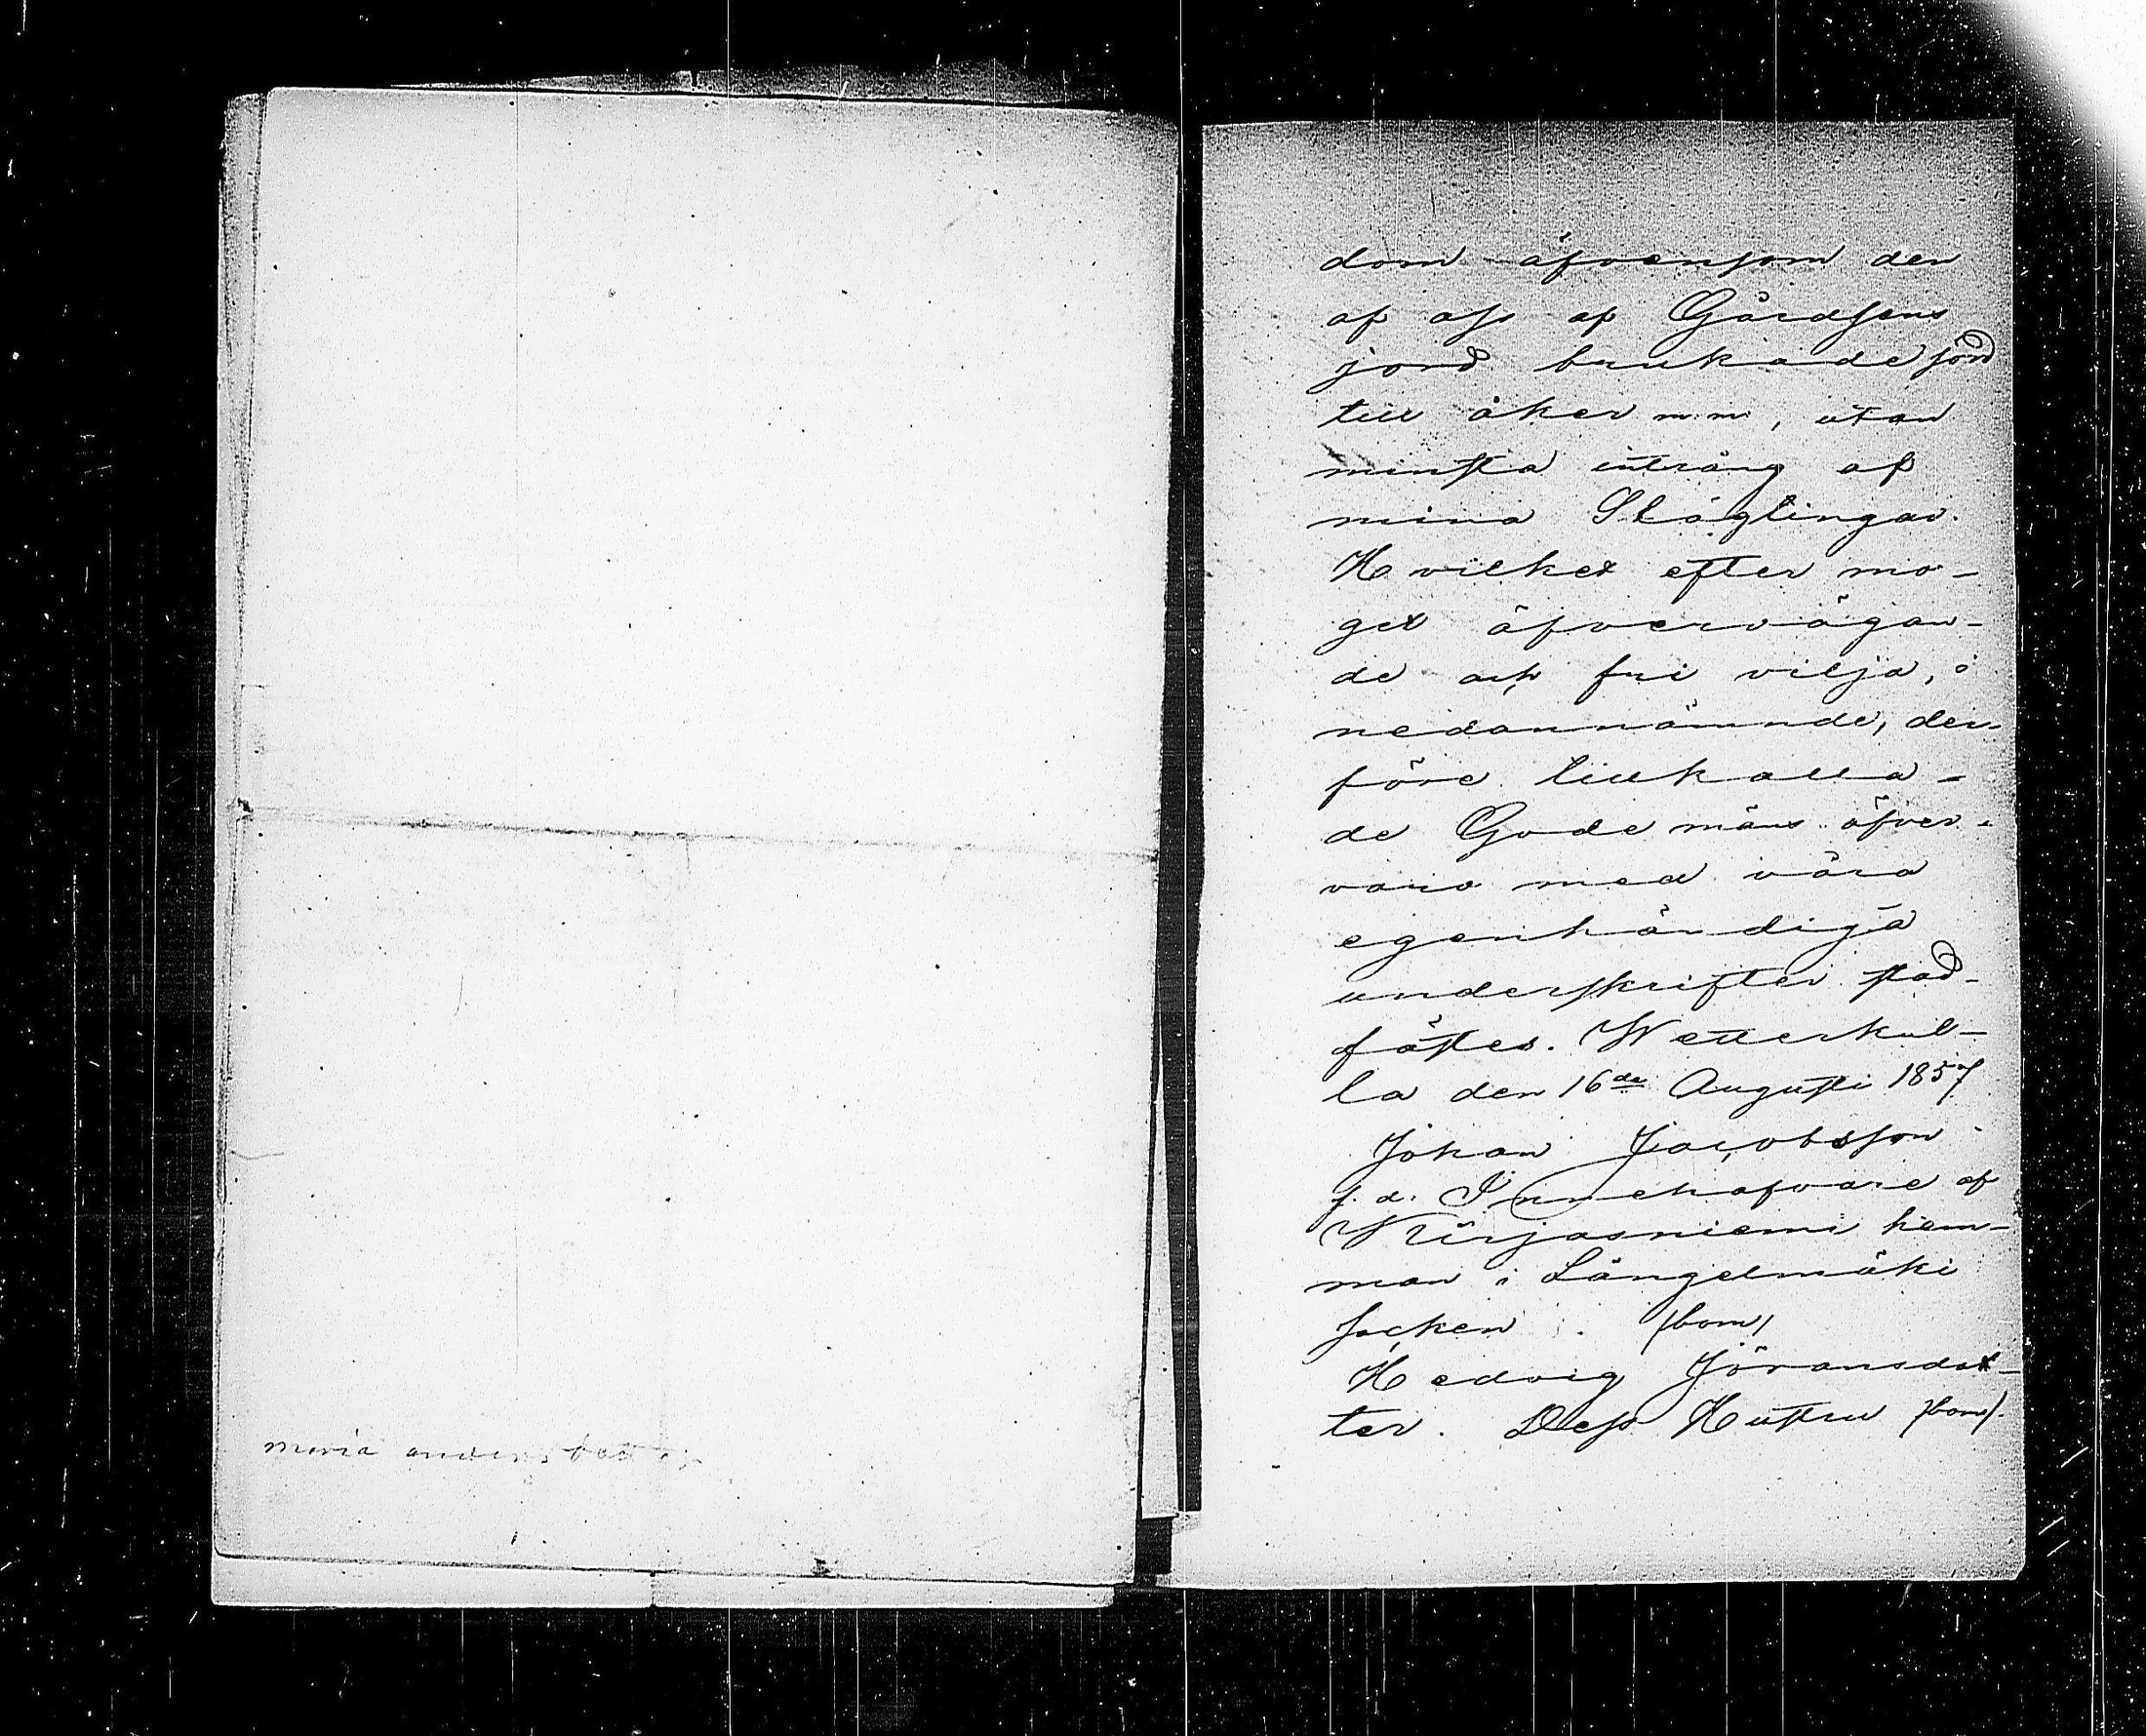 maria anders
dom äfvensom den
af oss af Gårdsens
jord brukade jord
till åker m.m, utan
minsta intrång af
mina Slägtingar.
Hvilket efter mo-
get öfvervägan-
de och fri vilja, i
nedannämnde, der-
före tillkalla-
de Gode mäns öfver-
varo med våra
egenhändiga
underskrifter stad-
fästes. Wetterkul-
la den 16de Augusti 1857
Johan Jacobsson
f. d. Innehafvare af
Kirjasniemi hem-
man i Längelmäki
Socken. (bom)
Hedvig Jöransdot-
ter. Dess Hustru (bom).